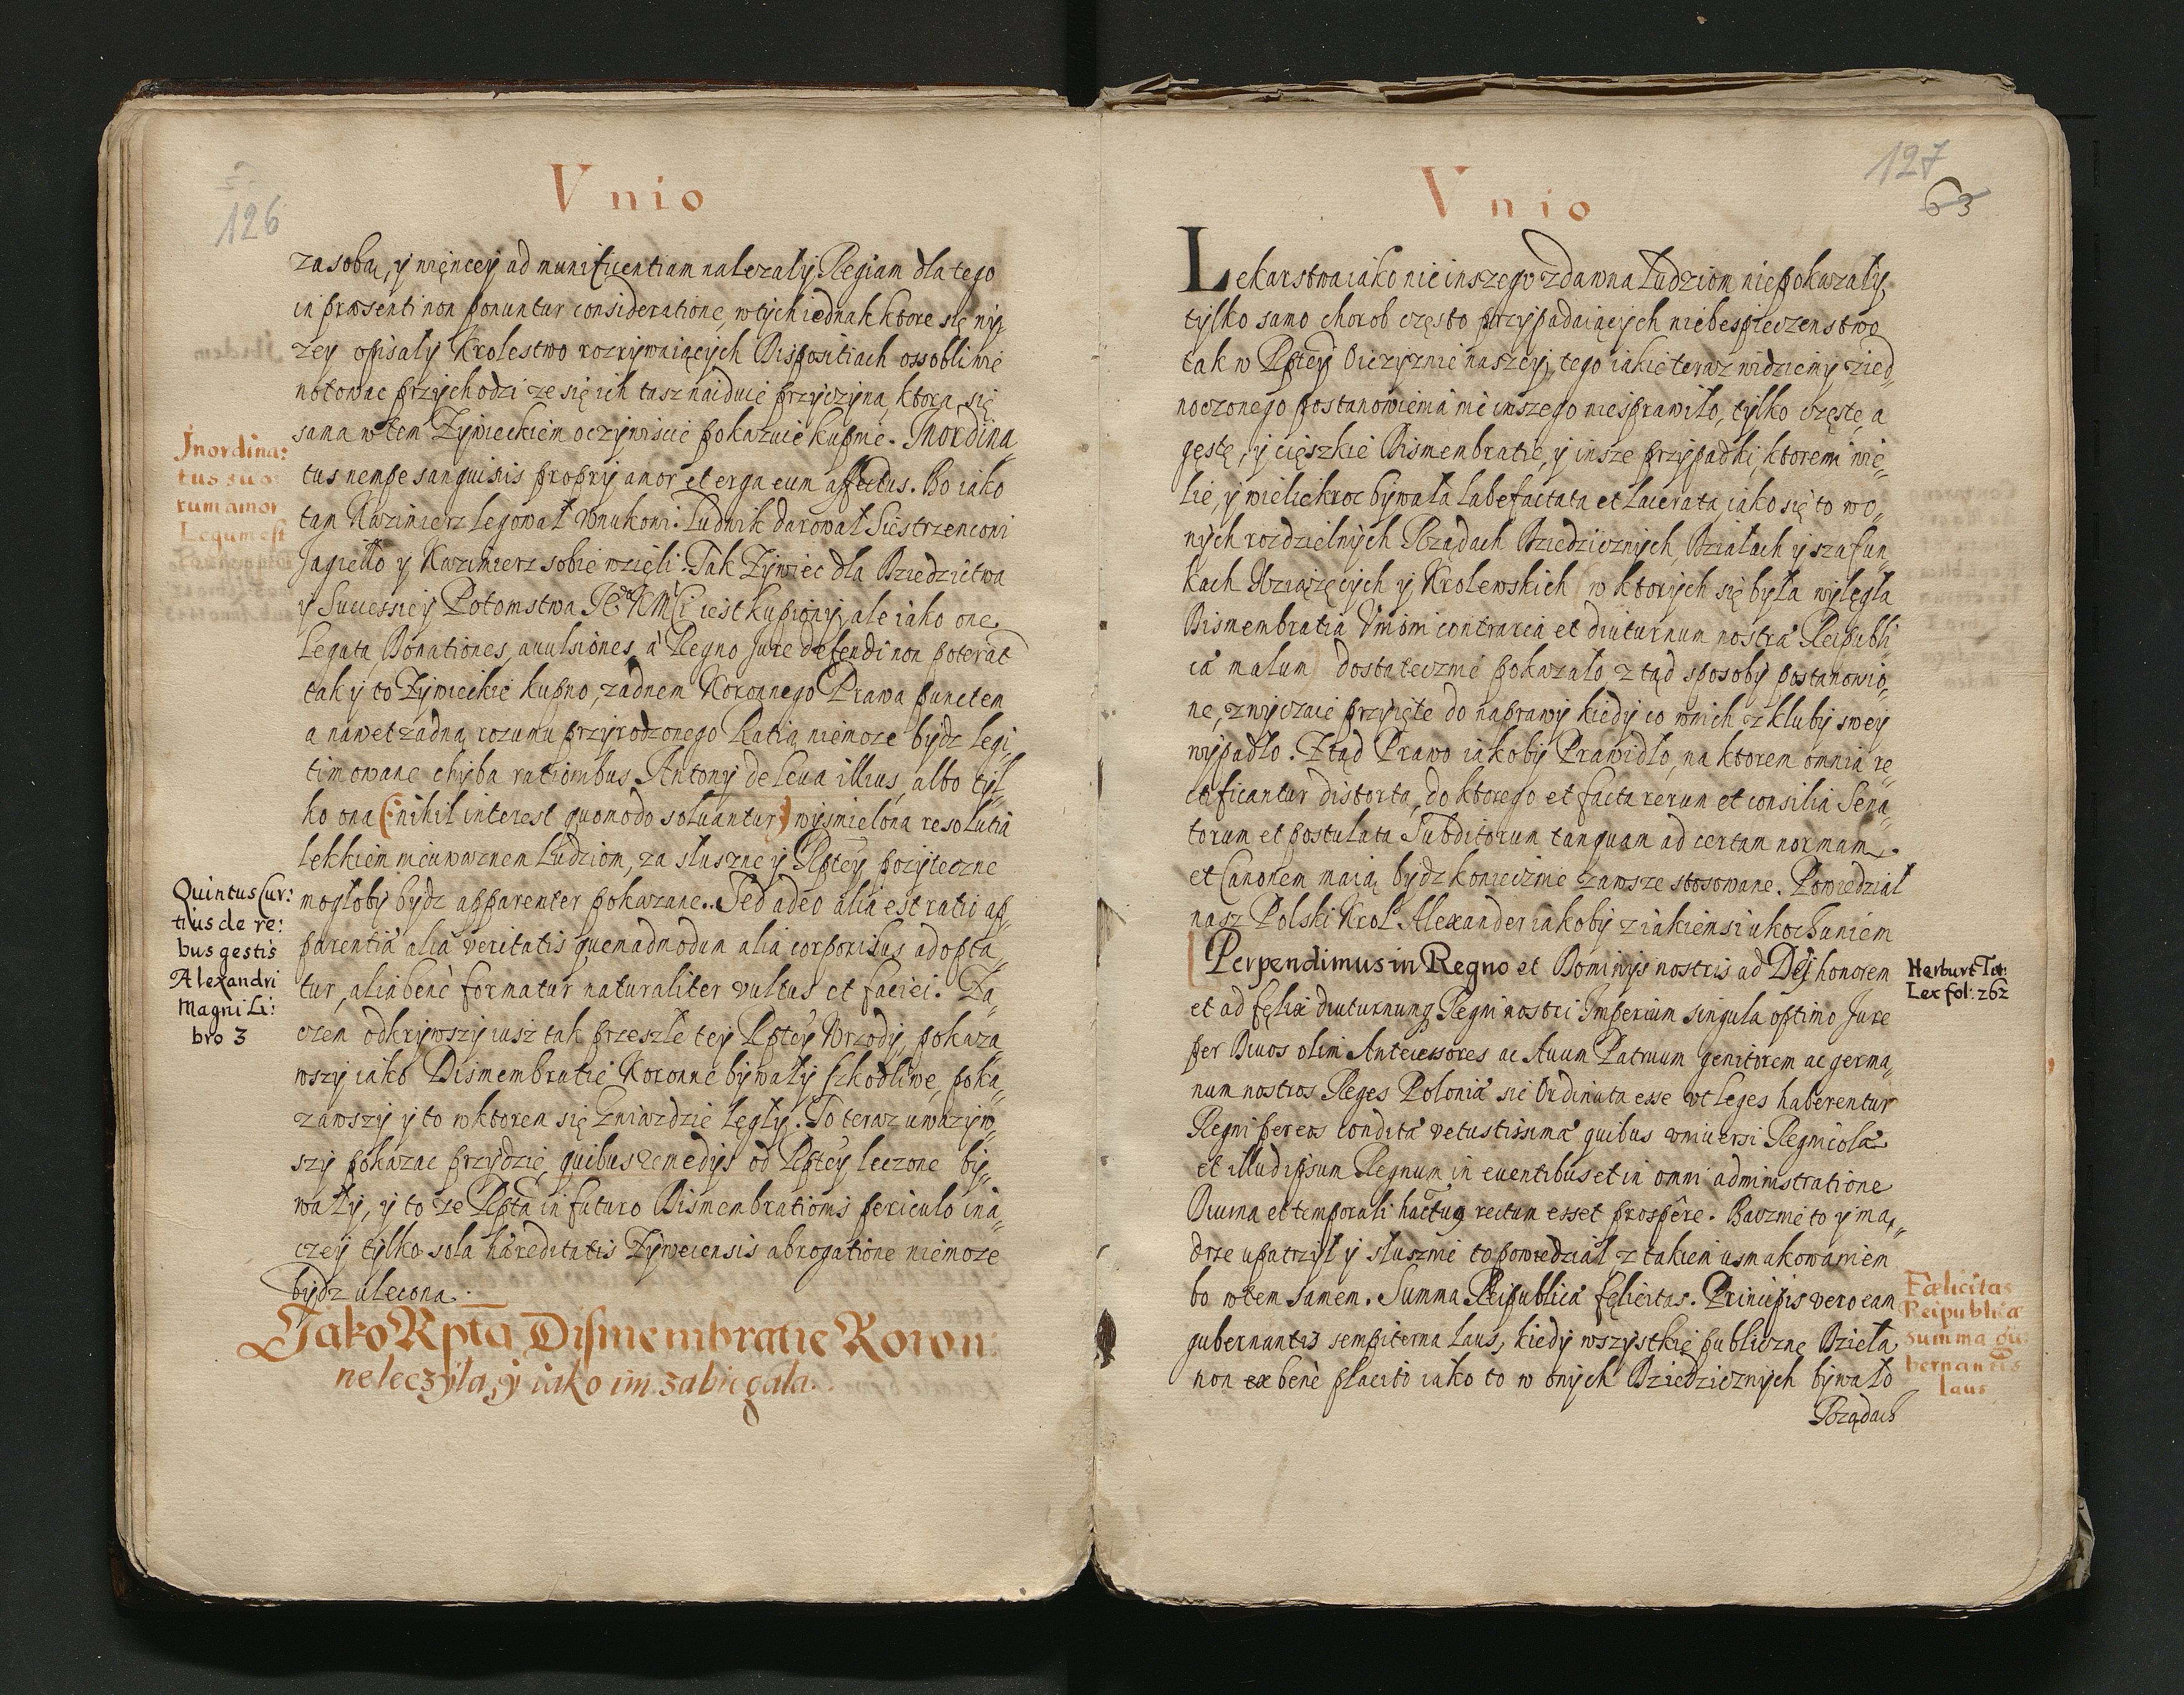 126
Vnio
za sobą, y więncey ad munificentiam nalezały Regiam dla tego
in præsenti non ponuntur consideratione, w tych iednak ktore się ny„
zey opisały Krolestwo rozrywaiących Dispositiach ossobliwie
notowac przychodzi ze się ich tasz naiduie przyczyna, ktora się
sama w tem Zywieckiem oczywiscie pokazuie kupnie. Inordina„
tus nempe sanguinis proprij amor et erga eum affectus. Bo iako
tam Kazimierz legował Wnukowi. Ludwik darował Siestrzencowi
Jagiełło y Kazimierz sobie wzięli. Tak Zywiec dla Dziedzictwa
y Successiey Potomstwa JeoKMści iest kupiony, ale iako one
Legata Donationes, auulsiones, a Regno Jure defendi non poterãt
tak y to Zywieckie kupno, zadnem Koronnego Prawa punctem
a nawet zadną rozumu przyrodzonego Ratią niemoze bydz legi„
timowane chyba rationibus Antony de Leua illius, albo tyl„
ko ona (: nihil interest quomodo soluantur :) wysmielona resolutia
lekkiem nieuwaznem Ludziom, za słuszne y Rptey pozyteczne
mogłoby bydz apparenter pokazane. Sed adeo alia est ratio ap„
parentiæ alia veritatis quemadmodum alia corporibus adopta„
tur, alia bene formatur naturaliter vultus et faciei. Za„
czem odkrywszy iusz tak przeszłe tey Rptey Wrzody, pokaza„
wszy iako Dismembratie Koronne bywały szkodliwe, poka„
zawszy y to w ktorem się Gniazdzie lęgły. To teraz uwazyw„
szy pokazac przydzie, quibus remedijs od Rptey leczone by„
wały, y to ze Rpta in futuro Dismembrationis periculo ina„
czey tylko sola hæreditatis Zywecensis abrogatione niemoze
bydz uleczona.
Jako Rpta Dismembratie Koron:
ne leczyła, y iako im zabiegała.
Inordina:
tus suo:
rum amor
Legum est
Quintus Cur:
tius de re:
bus gestis
Alexandri
Magni Li:
bro 3
127
63
Vnio
Lekarstwa iako nie inszego zdawna Ludziom nie pokazały,
tylko samo chorob często przypadaiących niebespieczenstwo
tak w Rptey Oiczyznie naszey, tego iakie teraz widziemy zied„
noczonego postanowienia nic inszego niesprawiło, tylko częste, a
gęste, y cięszkie Dismembratie, y insze przypadki, ktoremi wie„
lie, y wieliekroc bywała labefactata et lacerata, iako się to w o„
nych rozdzielnych Rządach Dziedzicznych, Działach y szafun„
kach Xiążęcych y Krolewskich w ktorych się była wylęgła
Dismembratia Vnioni contraria et diuturnum nostræ Reipubli„
cæ malum dostatecznie pokazało, z tąd sposoby postanowio„
ne, zwyczaie przyięte do naprawy kiedy co w nich z kluby swey
wypadło. Ztąd Prawo iakoby Prawidło, na ktorem omnia re„
ctificantur distorta, do ktorego et facta rerum et consilia Sena„
torum et postulata Subditorum tanquam ad certam normam
et Canonem maią bydz koniecznie zawsze stosowane. Powiedział
nasz Polski Krol Alexander iakoby z iakiemsi ukochaniem
Perpendimus in Regno et Dominijs nostris ad Dei honorem
et ad felix diuturnumq Regni nostri Imperium singula optimo Jure
per Diuos olim Antecessores ac Auum Patruum genitorem ac germa„
num nostros Reges Poloniæ sic Ordinata esse vt leges haberentur
Regni per eos condita vetustissima quibus vniuersi Regnicolæ
et illud ipsum Regnum in euentibus et in omni administratione
Diuina et temporali hactenus rectum esset prospere. Bacznie to y mą„
drze upatrzył y słusznie to powiedział z takiem usmakowaniem
bo w tem samem. Summa Reipublicæ felicitas. Principis vero eam
gubernantis sempiterna Laus, kiedy wszystkie publiczne Dzieła
non ex bene placito iako to w onych Dziedzicznych bywało
Rządach
Herburt Tit:
Lex fol: 262
Fælicitas
Reipublicæ
summa gu:
bernantis
laus